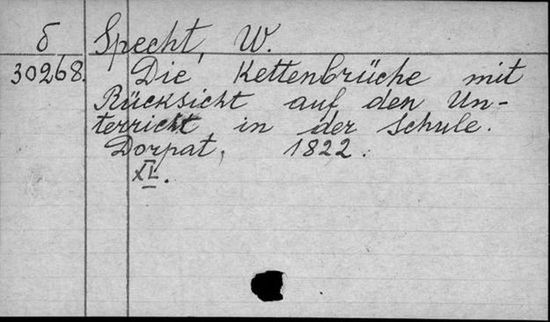 б Specht, W.
30268. Die Kettenbrüche mit
Rücksicht auf den Un-
terricht, in der Schule.
Dorpat, 1822.
XL.